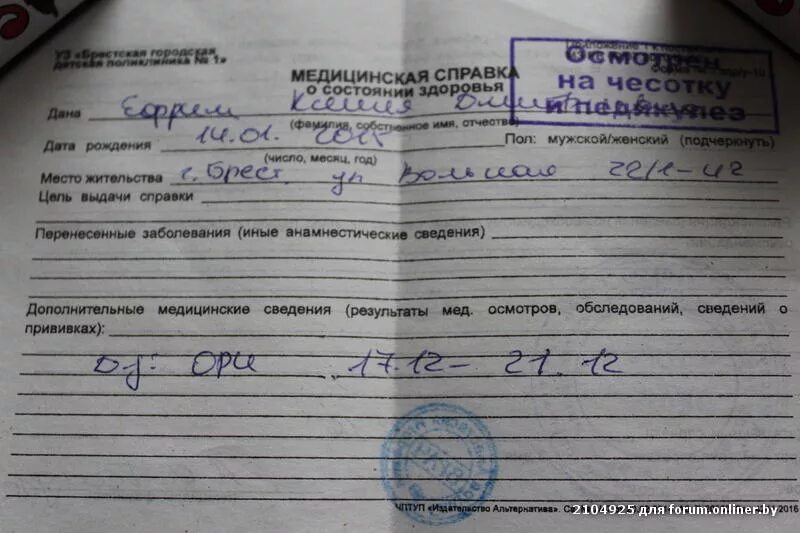 УЗ «Брестская городская
детская поликлиника № 1»
МЕДИЦИНСКАЯ СПРАВКА
о состоянии здоровья
Осмотрен
на чесотку
и педикулез
Дана Ефрем Ксения
(фамилия, собственное имя, отчество)
Дата рождения 14.01. 2015
Пол: мужской/женский (подчеркнуть)
(число, месяц, год)
Место жительства г. Брест ул Вольная 22/1-42
Цель выдачи справки
Перенесенные заболевания (иные анамнестические сведения)
Дополнительные медицинские сведения (результаты мед. осмотров, обследований, сведений о
прививках):
Dz: ОРИ 17.12- 21.12
ЧПТУП «Издательство Альтернатива». 2016
2104925 для forum.onliner.by